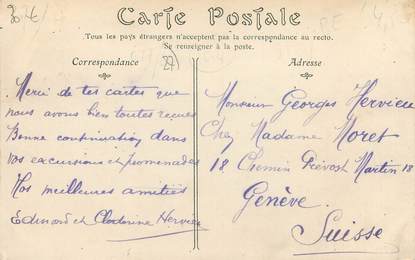 Carte Postale
Tous les pays étrangers n'acceptent pas la correspondance au recto.
Se renseigner à la poste.
Correspondance
27
Adresse
Merci de tes cartes que
nous avons bien toutes reçues
Bonne continuation dans
vos excursions et promenades
Nos meilleures amitiés
Edouard et Hervieu
Monsieur Georges Hervieu
Chez Madame Moret
18 Chemin Prévost Martin 18
Genève.
Suisse